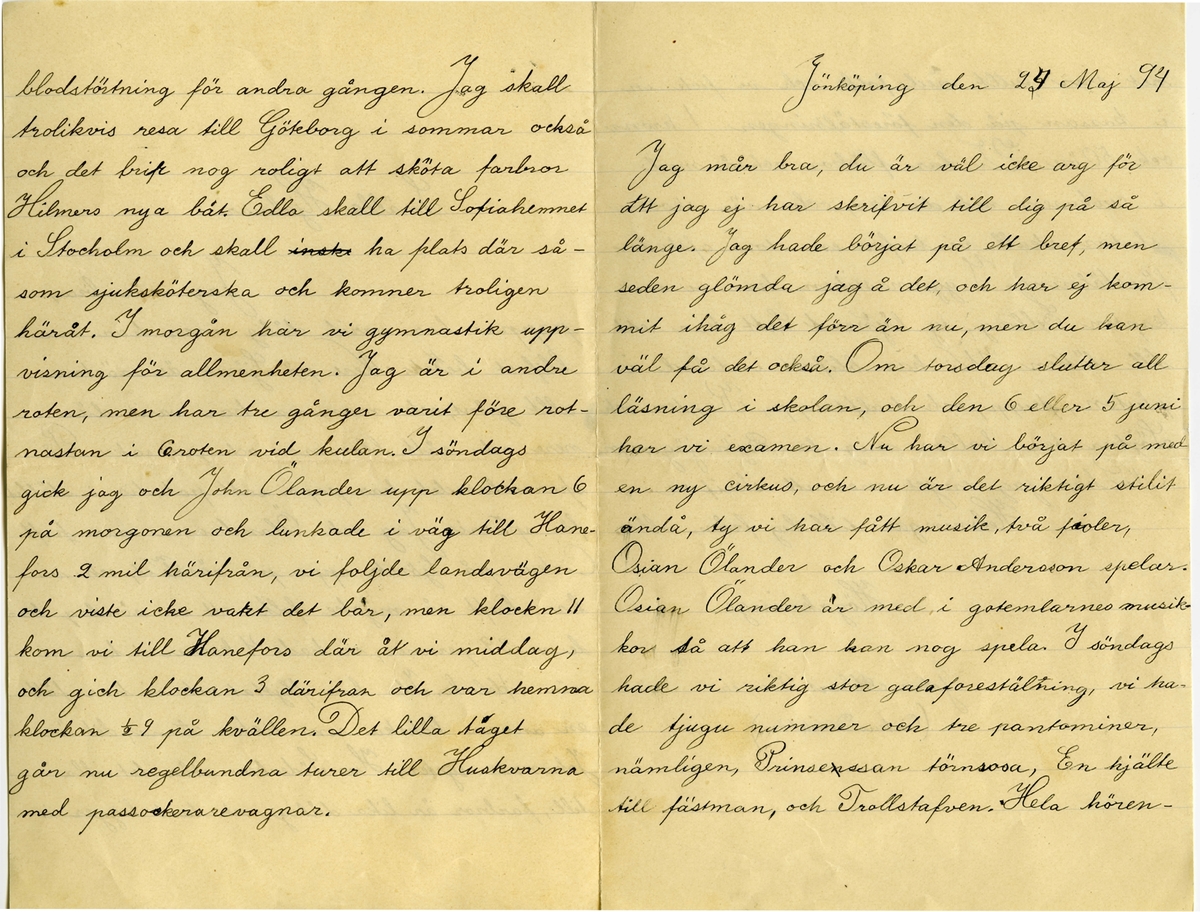 blodstörtning för andra gången. Jag skall
trolikvis resa till Göteborg i sommar också
och det brifr nog roligt att sköta farbror
Hilmers nya båt. Edla skall till Sofiahemnet
i Stocholm och skall insk ha plats där så-
som sjuksköterska och komner troligen
häråt. I morgån har vi gymnastik upp-
visning för allmenheten. Jag är i andre
roten, men har tre gånger varit före rot-
nastan i 6roten vid kulan. I söndags
gick jag och John Ölander upp klockan 6
på morgonen och lunkade i väg till Hane-
fors 2 mil härifrån, vi foljde landsvägen
och viste icke vart det bår, men klockn 11
kom vi till Hanefors där åt vi middag,
och gich klockan 3 därifran och var hemma
klockan ½ 9 på kvällen. Det lilla tåget
går nu regelbundna turer till Huskvarna
med passockerarevagnar.
Jönköping den 29 Maj 94
Jag mår bra, du är väl icke arg för
att jag ej har skrifvit till dig på så
länge. Jag hade börjat på ett bref, men
seden glömda jag å det, och har ej kom-
mit ihåg det förr än nu, men du kan
väl få det också. Om torsdag sluttar all
läsning i skolan, och den 6 eller 5 juni
har vi examen. Nu har vi börjat på med
en ny cirkus, och nu är det riktigt stilit
ändå, ty vi har fått musik, två fioler,
Osian Ölander och Oskar Andersson spelar.
Osian Ölander är med i gotemlarnes musik-
kor så att han kan nog spela. I söndags
hade vi riktig stor galaforestälning, vi ha-
de tjugu nummer och tre pantominer,
nämligen, Prinsenssan törnsosa, En hjälte
till fästman, och Trollstafven. Hela hören-